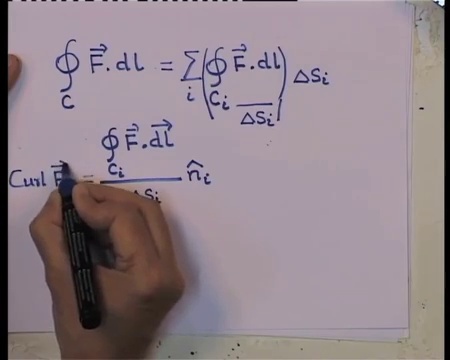 ∮_C F⃗.dl = Σ_i (∮_{Ci} F⃗.dl / ΔSi) ΔSi
Curl F⃗ = ∮_{Ci} F⃗.dl⃗ / ΔSi n̂i